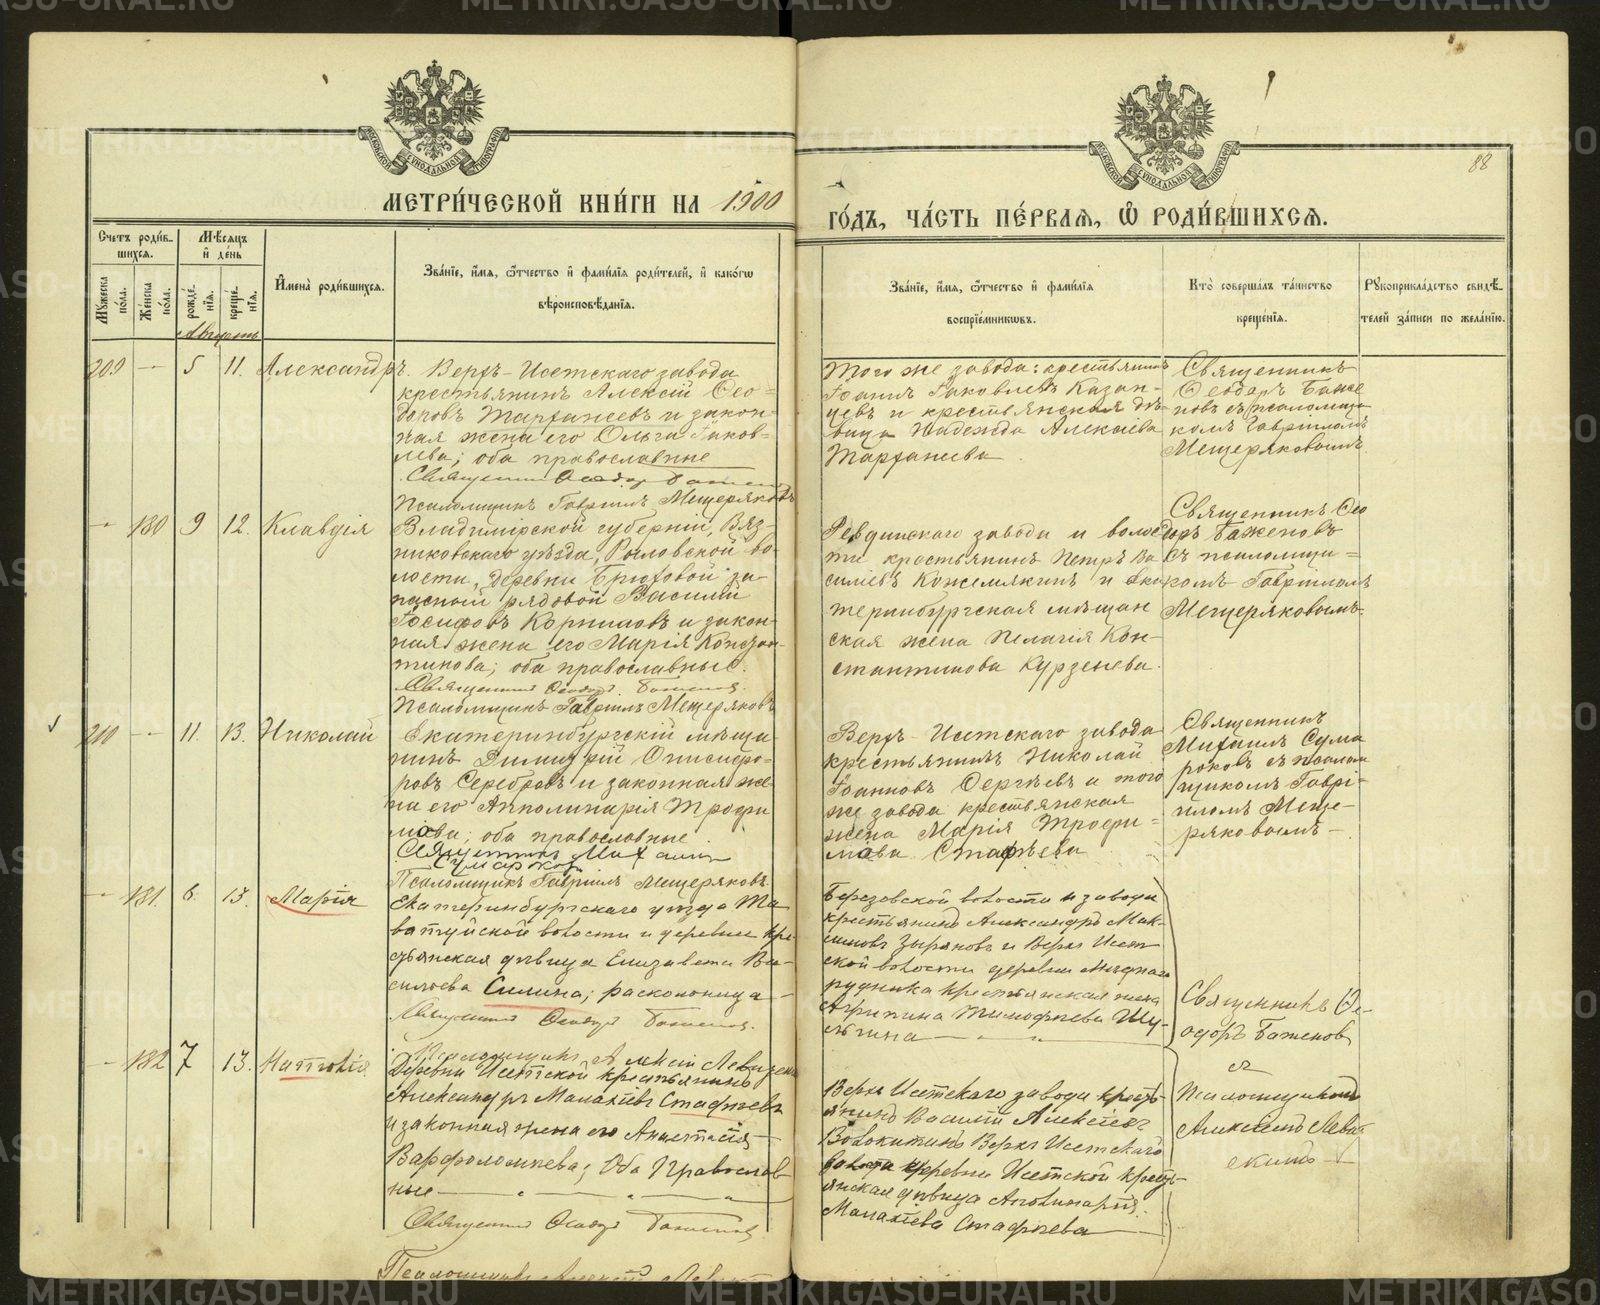 МЕТРИ́ЧЕСКОЙ КНИ́ГИ НА 1900
ГО́ДЪ, ЧА́СТЬ ПЕ́РВАѦ, Ѽ РОДИ́ВШИХСѦ.
88
Счетъ роди́в-
шихся.
Му́жеска по́ла.
Же́нска по́ла.
Мѣ́сяцъ и́ де́нь
рожде́нїя.
креще́нїя.
И҆мена̀ роди́вшихся.
Зва́нїе, и҆́мя, ѻ҆́тчество и҆ фамилїя роди́телей, и҆ како́гѡ
вѣроисповѣ́данїя.
Зва́нїе, и҆́мя, ѻ҆́тчество и҆ фами́лїя
воспрїе́мниковъ.
Кто̀ соверша́лъ та́инство
креще́нїя.
Рукоприкла́дство свидѣ́-
телей за́писи по жела́нїю.
Августъ
209 — 5 11. Александръ.
Верхъ-Исетскаго завода
крестьянинъ Алексій Ѳео-
доровъ Тарханеевъ и закон-
ная жена его Ольга Іаков-
лева; оба православные
Священникъ Ѳеодоръ Баженовъ
Псаломщикъ Гавріилъ Мещеряковъ
Того же завода: крестьянинъ
Іоаннъ Іаковлевъ Казан-
цевъ и крестьянская дѣ-
вица Надежда Алексіева
Тарханеева
Священникъ
Ѳеодоръ Баже
новъ съ псаломщи
комъ Гавріиломъ
Мещеряковымъ
— 180 9 12. Клавдія
Владимірской губерніи, Вяз-
никовскаго уѣзда, во-
лости, деревни Брюховой за-
пасный рядовой Василій
Іосифовъ Корниловъ и закон-
ная жена его Марія Констан-
тинова; оба православные.
Священникъ Ѳеодоръ Баженовъ.
Псаломщикъ Гавріилъ Мещеряковъ
Ревдинскаго завода и волос
ти крестьянинъ Петръ Ва
силіевъ Кожемякинъ и Ека
теринбургская мѣщан
ская жена Пелагія Кон-
стантинова Курзенева.
Священникъ Ѳео
доръ Баженовъ
съ псаломщи=
комъ Гавріиломъ
Мещеряковымъ.
210 — 11. 13. Николай
Екатеринбургскій мѣща
нинъ Димитрій Онисифо-
ровъ Серебровъ и законная же-
на его Апполинарія Трофи
мова; оба православные.
Священникъ Михаилъ
Сумароковъ
Псаломщикъ Гавріилъ Мещеряковъ.
Верхъ-Исетскаго завода
крестьянинъ Николай
Іоанновъ Сергѣевъ и того
же завода крестьянская
жена Марія Трофи-
мова Стафѣева
Священникъ
Михаилъ Сума
роковъ съ псалом
щикомъ Гаврі-
иломъ Меще-
ряковымъ —
— 181. 6. 13. Марія
Екатеринбургскаго уѣзда Та
ватуйской волости и деревни кре
стьянская дѣвица Елизавета Ва-
сильева Силина; расколоница —
Священникъ Ѳеодоръ Баженовъ.
Псаломщикъ Алексій
Березовской волости и завода
крестьянинъ Александръ Мак-
симовъ Зыряновъ и Верхъ Исет
ской волости деревни Мѣднаго
рудника крестьянская жена
Агрипина Тимофѣева Шу-
Священникъ Ѳе-
одоръ Баженовъ
съ
Псаломщикомъ
Алексіемъ
— 182 7 13. Наталія
Деревни Исетской крестьянинъ
Александръ Малахіевъ Стафѣевъ
и законная жена его Анастасія
Варфоломѣева; Оба Православ
ные —
Священникъ Ѳеодоръ Баженовъ
Псаломщикъ Алексій
Верхъ Исетскаго завода кресть-
янинъ Василій Алексѣевъ
Волокитинъ Верхъ Исетской
волости деревни Исетской кресть-
янская дѣвица Аполинарія
Малахіева Стафѣева
METRIKI.GASO-URAL.RU